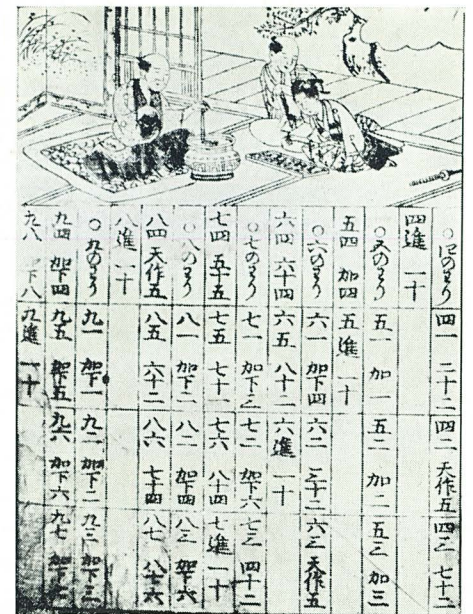 ○四のわり 四一 二十二 四二 天作五 四三 七十二
四進 一十
○五のわり 五一 加一 五二 加二 五三 加三
五四 加四 五進 一十
○六のわり 六一 加下四 六二 三十二 六三 天作五
六四 六十四 六五 八十二 六進 一十
○七のわり 七一 加下三 七二 加下六 七三 四十二
七四 五十五 七五 七十一 七六 八十四 七進 一十
○八のわり 八一 加下二 八二 加下四 八三 加下六
八四 天作五 八五 六十二 八六 七十四 八七 八十六
八進 一十
○九のわり 九一 加下一 九二 加下二 九三 加下三
九四 加下四 九五 加下五 九六 加下六 九七 加下七
九八 下八 九進 一十